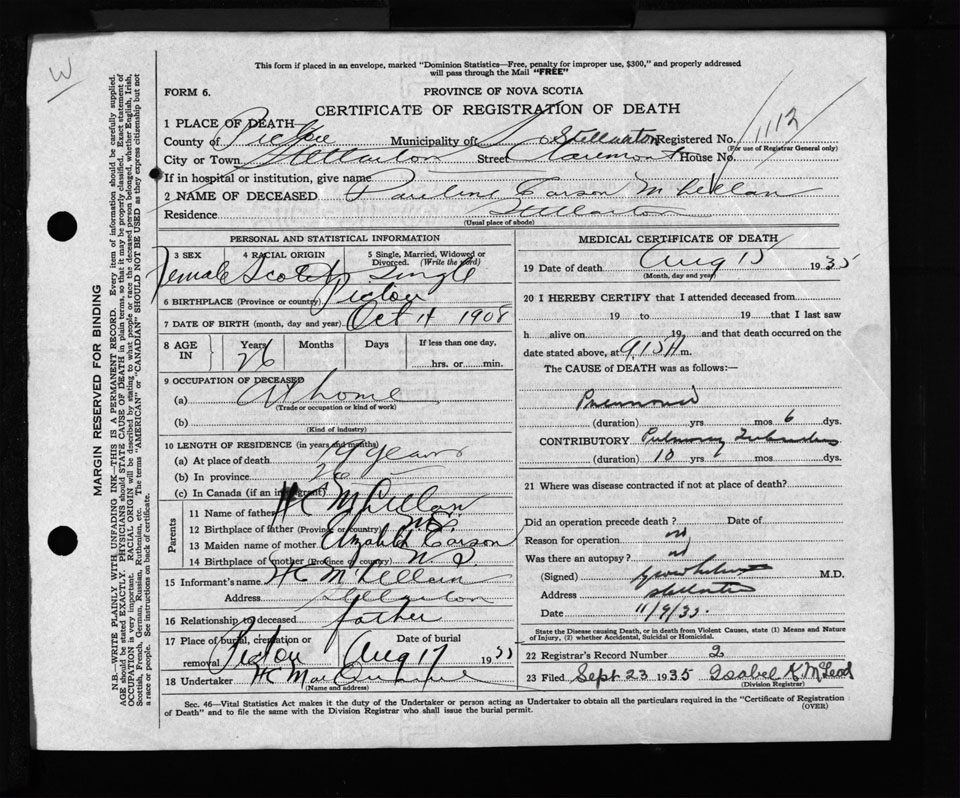 W
This form if placed in an envelope, marked "Dominion Statistics—Free, penalty for improper use, $300," and properly addressed
will pass through the Mail "FREE"
FORM 6.
PROVINCE OF NOVA SCOTIA
CERTIFICATE OF REGISTRATION OF DEATH
1 PLACE OF DEATH
County of Pictou Municipality of Stellarton Registered No. 1112
(For use of Registrar General only)
City or Town Stellarton Street Claremont House No.
If in hospital or institution, give name
2 NAME OF DECEASED Pauline Carson McLellan
Residence Stellarton
(Usual place of abode)
PERSONAL AND STATISTICAL INFORMATION
3 SEX 4 RACIAL ORIGIN 5 Single, Married, Widowed or
Divorced. (Write the word)
Female Scotch Single
6 BIRTHPLACE (Province or country) Pictou
7 DATE OF BIRTH (month, day and year) Oct 14 1908
8 AGE IN Years Months Days If less than one day,
26 hrs. or min.
9 OCCUPATION OF DECEASED
(a) At home
(Trade or occupation or kind of work)
(b)
(Kind of industry)
10 LENGTH OF RESIDENCE (in years and months)
(a) At place of death 19 years
(b) In province 26
(c) In Canada (if an immigrant)
Parents
11 Name of father H C McLellan
12 Birthplace of father (Province or country) N.S.
13 Maiden name of mother Elizabeth Carson
14 Birthplace of mother (Province or country) N.S.
15 Informant's name H C McLellan
Address Stellarton
16 Relationship to deceased father
17 Place of burial, cremation or Date of burial
removal Pictou Aug 17 1935
18 Undertaker H C
(Name and address)
MEDICAL CERTIFICATE OF DEATH
19 Date of death Aug 15 1935
(Month, day and year)
20 I HEREBY CERTIFY that I attended deceased from
19 to 19 that I last saw
h alive on 19 and that death occurred on the
date stated above, at 9.15 A m.
The CAUSE of DEATH was as follows:—
Pneumonia
(duration) yrs. mos. 6 dys.
CONTRIBUTORY Pulmonary Tuberculosis
(duration) 10 yrs. mos. dys.
21 Where was disease contracted if not at place of death?
Did an operation precede death? Date of
Reason for operation no
Was there an autopsy? no
(Signed) M.D.
Address Stellarton
Date 11/9/35.
State the Disease causing Death, or in death from Violent Causes, state (1) Means and Nature
of Injury, (2) whether Accidental, Suicidal or Homicidal.
22 Registrar's Record Number 2
23 Filed Sept 23 1935 Isabel K. McLeod
(Division Registrar)
Sec. 46—Vital Statistics Act makes it the duty of the Undertaker or person acting as Undertaker to obtain all the particulars required in the "Certificate of Registration
of Death" and to file the same with the Division Registrar who shall issue the burial permit.
(OVER)
MARGIN RESERVED FOR BINDING
N.B.—WRITE PLAINLY WITH UNFADING INK—THIS IS A PERMANENT RECORD. Every item of information should be carefully supplied.
AGE should be stated EXACTLY. PHYSICIANS should STATE CAUSE OF DEATH in plain terms, so that it may be properly classified. Exact statement of
OCCUPATION is very important. RACIAL ORIGIN will be described by stating to what people or race the deceased person belonged, whether English, Irish,
Scottish, French, German, Russian, Ruthenian, etc. The terms "AMERICAN" or "CANADIAN" SHOULD NOT BE USED as they express citizenship but not
a race or people. See instructions on back of certificate.